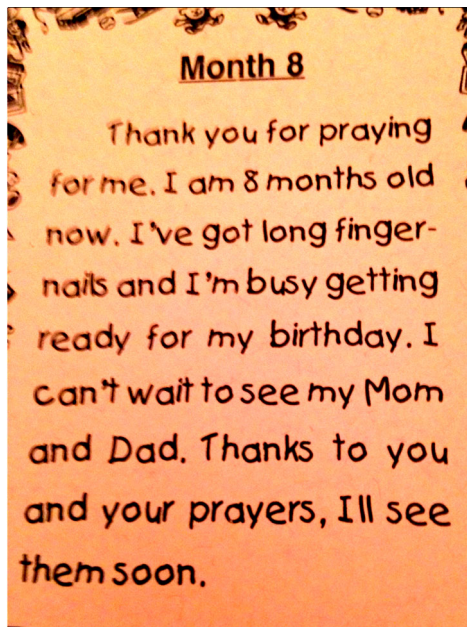 Month 8
Thank you for praying
for me. I am 8 months old
now. I've got long finger-
nails and I'm busy getting
ready for my birthday. I
can't wait to see my Mom
and Dad. Thanks to you
and your prayers, Ill see
them soon.